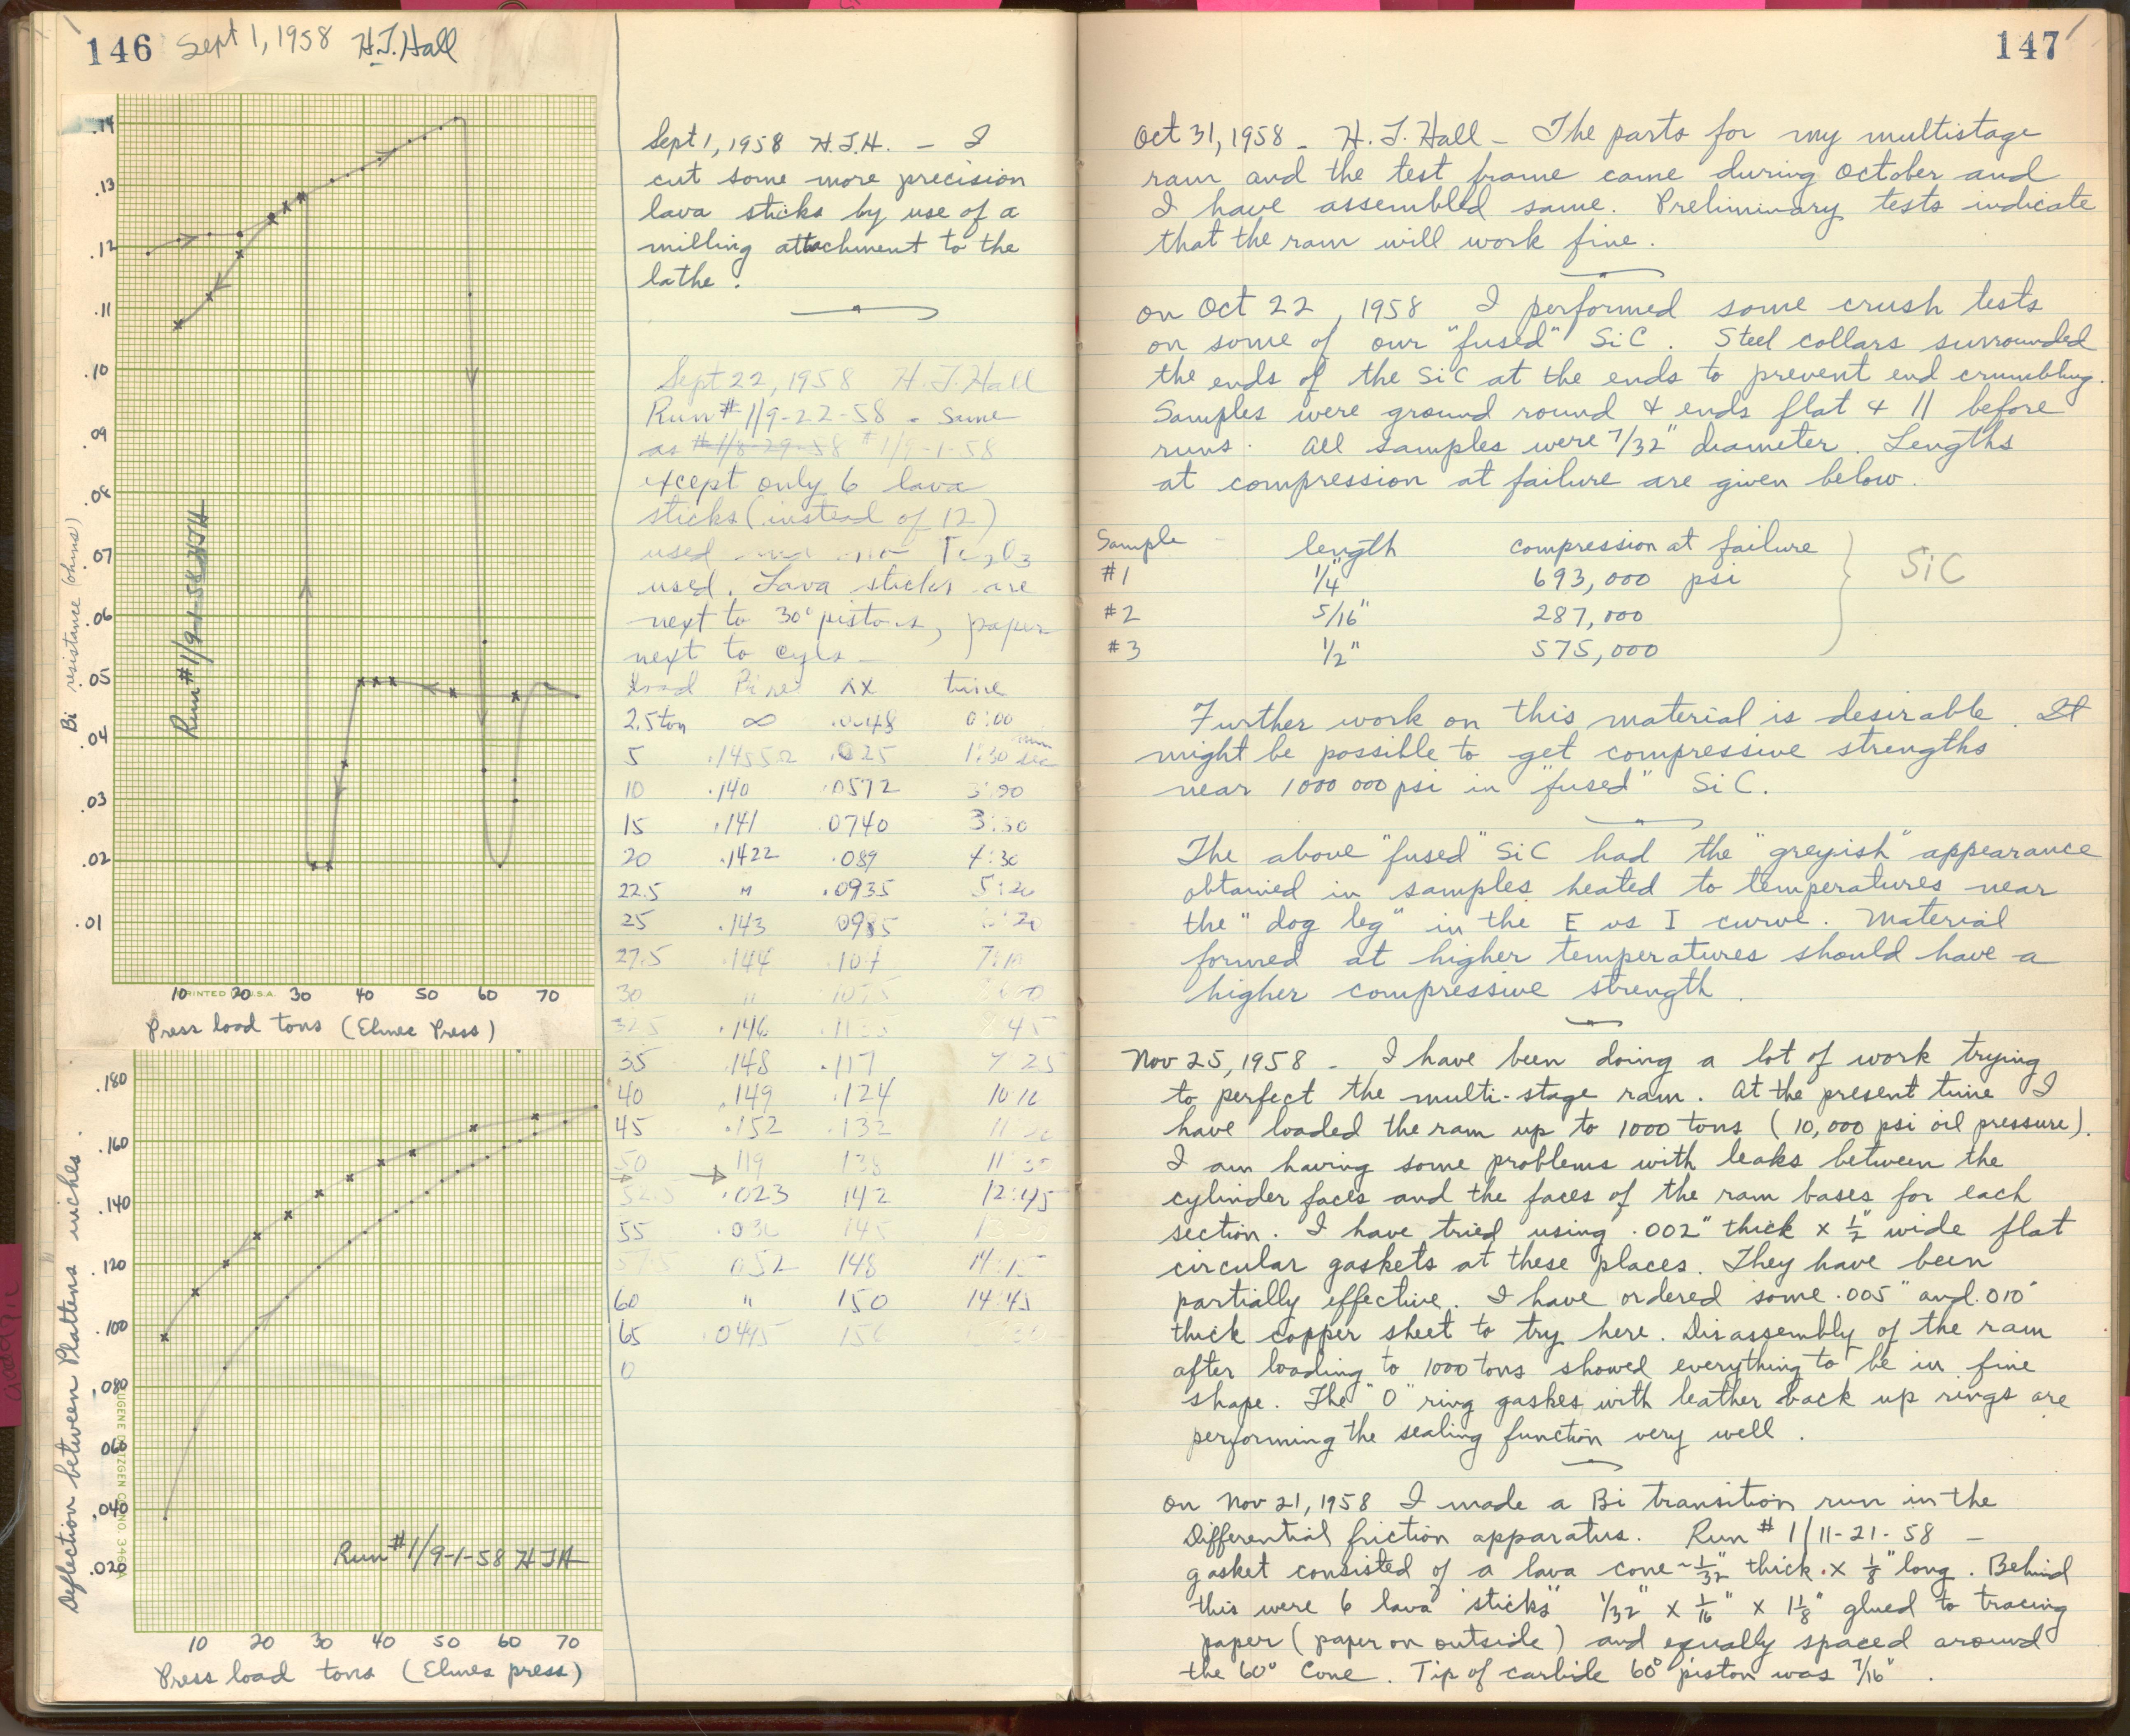 146 Sept 1, 1958 H.T. Hall
.14
.13
.12
.11
.10
.09
.08
.07
.06
.05
.04
.03
.02
.01
Bi resistance (ohms)
Run #1/9-1-58 HTH
10 20 30 40 50 60 70
PRINTED IN U.S.A.
Press load tons (Elmes Press)
.180
.160
.140
.120
.100
.080
.060
.040
.020
Deflection between Plattens inches.
EUGENE DIETZGEN CO. NO. 346
Run #1/9-1-58 HTH
10 20 30 40 50 60 70
Press load tons (Elmes press)
Sept 1, 1958 H.T.H. - I
cut some more precision
lava sticks by use of a
milling attachment to the
lathe.
Sept 22, 1958 H.T. Hall
Run #1/9-22-58 - same
as #1/8-29-58 #1/9-1-58
except only 6 lava
sticks (instead of 12)
used Fe2O3
used. Lava sticks are
next to 30° pistons, paper
next to cyls -
load Bi res ΔX time
2.5 ton ∞ .0048 0:00
5 .1455Ω .025 1:30 min sec
10 .140 .0572
15 .141 .0740 3:30
20 .1422 .089 4:30
22.5 " .0935 5:20
25 .143 0985 20
27.5 .144 .104
30 "
32.5 .146 45
35 .148 .117 25
40 .149 .124 10:10
45 .152 .132
50 → 119 138 11:35
→ 52.5 .023 142 12:45
55 145
57.5 052 148
60 " 150 14:45
65 .0495
0
147
Oct 31, 1958 - H. T. Hall - The parts for my multistage
ram and the test frame came during October and
I have assembled same. Preliminary tests indicate
that the ram will work fine.
On Oct 22, 1958 I performed some crush tests
on some of our "fused" SiC. Steel collars surrounded
the ends of the SiC at the ends to prevent end crumbling.
Samples were ground round & ends flat & || before
runs. All samples were 7/32" diameter. Lengths
at compression at failure are given below.
Sample length compression at failure
#1 1/4" 693,000 psi
#2 5/16" 287,000
#3 1/2" 575,000
SiC
Further work on this material is desirable. It
might be possible to get compressive strengths
near 1000 000 psi in "fused" SiC.
The above "fused" SiC had the "greyish" appearance
obtained in samples heated to temperatures near
the "dog leg" in the E vs I curve. Material
formed at higher temperatures should have a
higher compressive strength.
Nov 25, 1958 - I have been doing a lot of work trying
to perfect the multi-stage ram. At the present time I
have loaded the ram up to 1000 tons (10,000 psi oil pressure).
I am having some problems with leaks between the
cylinder faces and the faces of the ram bases for each
section. I have tried using .002" thick x 1/2" wide flat
circular gaskets at these places. They have been
partially effective. I have ordered some .005" and .010"
thick copper sheet to try here. Disassembly of the ram
after loading to 1000 tons showed everything to be in fine
shape. The "O" ring gaskes with leather back up rings are
performing the sealing function very well.
On Nov 21, 1958 I made a Bi transition run in the
Differential friction apparatus. Run # 1/11-21-58 -
gasket consisted of a lava cone ~1/32" thick x 1/8" long. Behind
this were 6 lava "sticks" 1/32" x 1/16" x 1 1/8" glued to tracing
paper (paper on outside) and equally spaced around
the 60° cone. Tip of carbide 60° piston was 7/16".